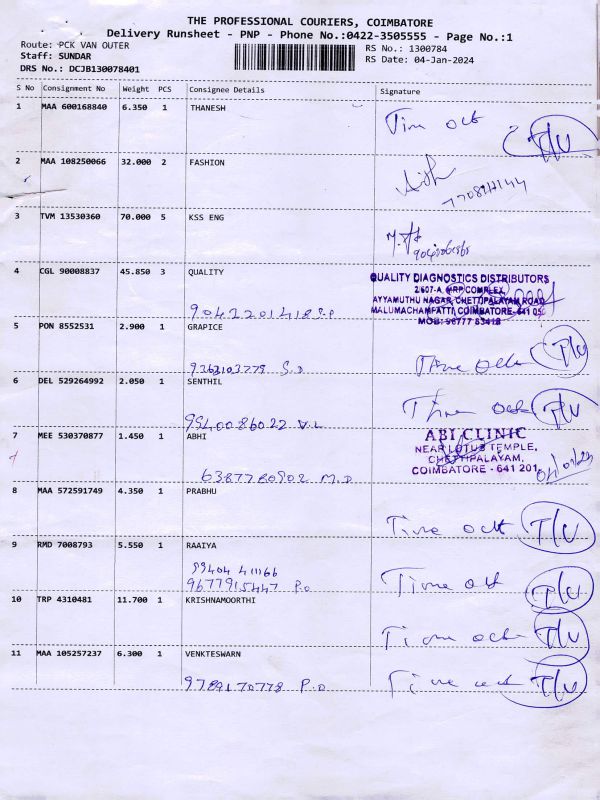 THE PROFESSIONAL COURIERS, COIMBATORE
Delivery Runsheet - PNP - Phone No.:0422-3505555 - Page No.:1
Route: PCK VAN OUTER RS No.: 1300784
Staff: SUNDAR RS Date: 04-Jan-2024
DRS No.: DCJB130078401
S No Consignment No Weight PCS Consignee Details Signature
1 MAA 600168840 6.350 1 THANESH
Time oct T/U
2 MAA 108250066 32.000 2 FASHION
3 TVM 13530360 70.000 5 KSS ENG
4 CGL 90008837 45.850 3 QUALITY
QUALITY DIAGNOSTICS DISTRIBUTORS
2/607-A, MRP COMPLEX
AYYAMUTHU NAGAR, CHETTIPALAYAM ROAD
MALUMACHAMPATTI, COIMBATORE-641 050
MOB: 96777 83418
9042201418 S.P
5 PON 8552531 2.900 1 GRAPICE
9363103779 S.D Time oct T/U
6 DEL 529264992 2.050 1 SENTHIL
Time oct T/U
9940086022 V.L
7 MEE 530370877 1.450 1 ABHI
ABI CLINIC
NEAR LOTUS TEMPLE,
CHETTIPALAYAM,
COIMBATORE - 641 201
6387780902 M.D
8 MAA 572591749 4.350 1 PRABHU
Time oct T/U
9 RMD 7008793 5.550 1 RAAIYA
99404 41166
9677915447 P.O Time oct T/U
10 TRP 4310481 11.700 1 KRISHNAMOORTHI
Time oct T/U
11 MAA 105257237 6.300 1 VENKTESWARN
9789170778 P.O Time oct T/U